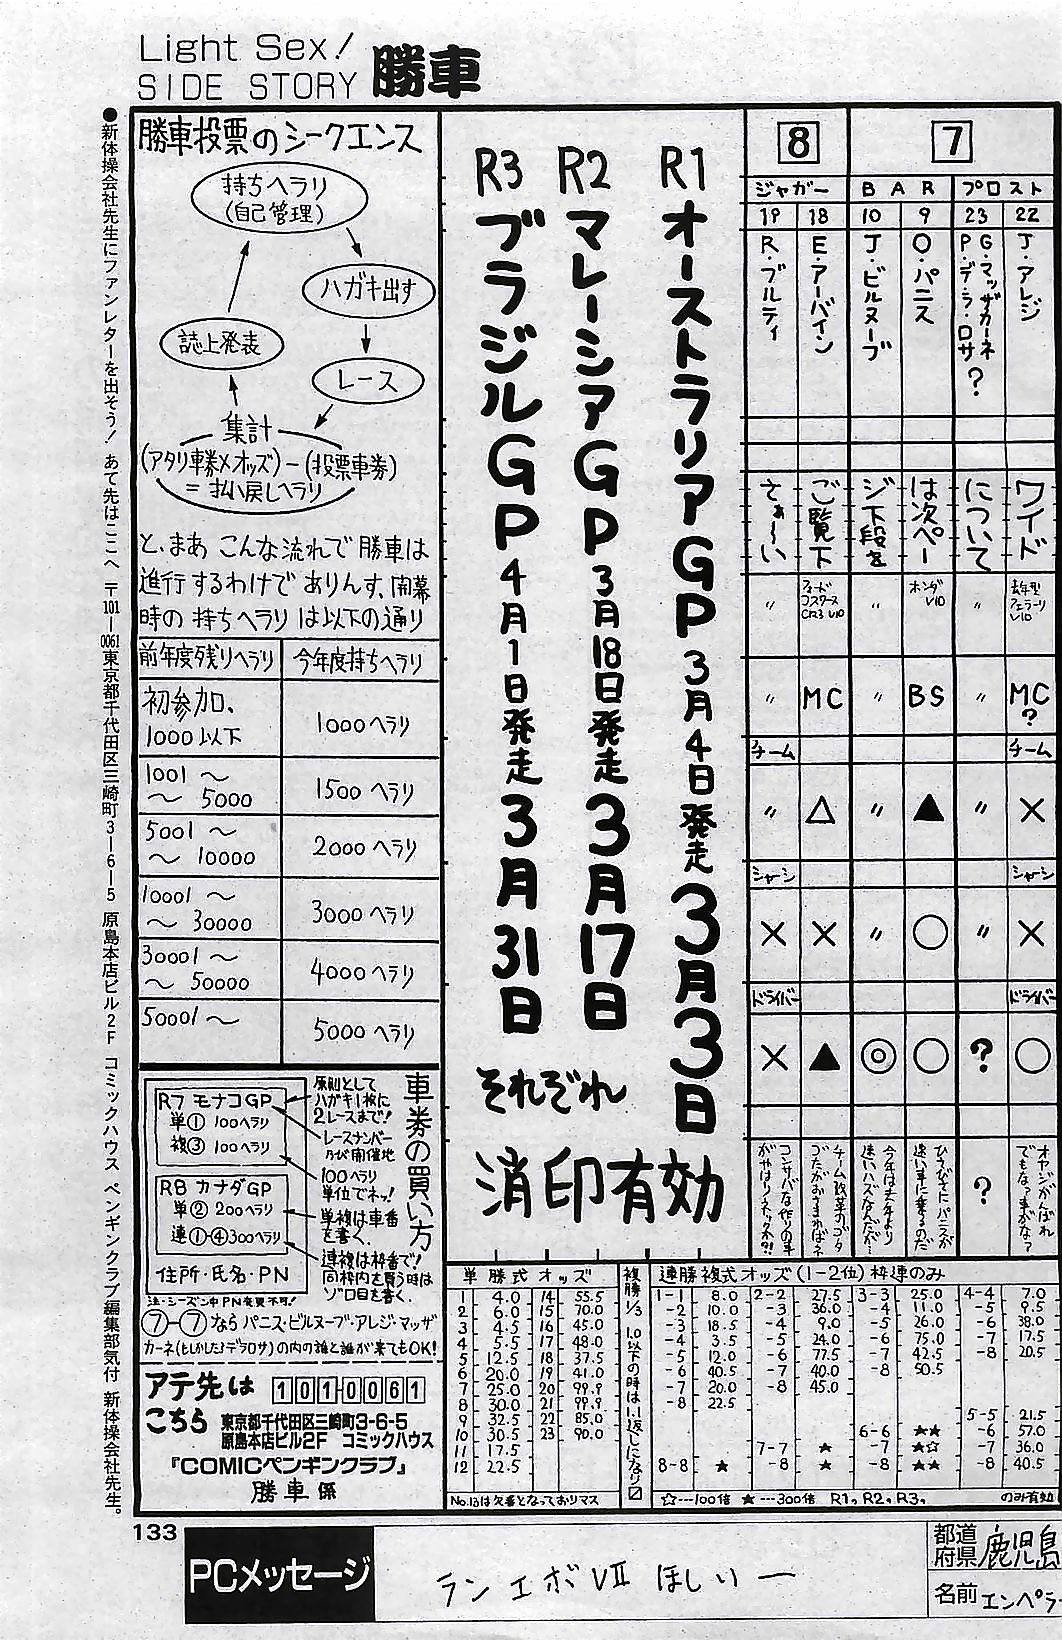 Light Sex!
SIDE STORY 勝車
●新体操会社先生にファンレターを出そう! あて先はここへ 〒101-0061東京都千代田区三崎町3-6-5 原島本店ビル2F コミックハウス ペンギンクラブ編集部気付 新体操会社先生。
8 7
ジャガー BAR プロスト
19 18 10 9 23 22
J・アレジ
G・マッザカーネ
P・デ・ラ・ロサ?
O・パニス
J・ビルヌーブ
E・アーバイン
R・ブルティ
ワイド
について
は次ペー
ジ下段を
ご覧下
さぁ〜い
〃 フォードコスワースCR3 V10 〃 ホンダV10 〃 去年型フェラーリV10
〃 MC 〃 BS 〃 MC?
チーム チーム
〃 △ 〃 ▲ 〃 ×
シャーシ シャーシ
× × 〃 ○ 〃 ×
ドライバー ドライバー
× ▲ ◎ ○ ? ○
オヤジがんばれ
でもな?車がな?
?
今年は去年より
速いハズなんだが…
R1 オーストラリアGP 3月4日発走 3月3日
R2 マレーシアGP 3月18日発走 3月17日
R3 ブラジルGP 4月1日発走 3月31日
それぞれ
消印有効
勝車投票のシークエンス
持ちヘラリ
(自己管理)
ハガキ出す
レース
集計
(アタリ車券×オッズ)-(投票車券)
=払い戻しヘラリ
誌上発表
と、まあ こんな流れで勝車は
進行するわけでありんす、開幕
時の持ちヘラリは以下の通り
前年度残りヘラリ 今年度持ちヘラリ
初参加、
1000以下 1000ヘラリ
1001〜
〜5000 1500ヘラリ
5001〜
〜10000 2000ヘラリ
10001〜
〜30000 3000ヘラリ
30001〜
〜50000 4000ヘラリ
50001〜 5000ヘラリ
車券の買い方
R7 モナコGP
単① 100ヘラリ
複③ 100ヘラリ
R8 カナダGP
単② 200ヘラリ
連①-④300ヘラリ
住所・氏名・PN
原則として
ハガキ1枚に
2レースまで!
レースナンバー
及び開催地
100ヘラリ
単位でネッ!
単複は車番
を書く。
連複は枠番で!
同枠内を買う時は
ゾロ目を書く。
注:シーズン中PN変更不可!
⑦-⑦ならパニス・ビルヌーブ・アレジ・マッザ
カーネ(もしかしたらデラロサ)の内の誰と誰が来てもOK!
アテ先は 101-0061
こちら 東京都千代田区三崎町3-6-5
原島本店ビル2F コミックハウス
『COMICペンギンクラブ』
勝車係
単勝式オッズ
1 4.0 14 55.5
2 6.0 15 70.0
3 4.5 16 45.0
4 5.5 17 48.0
5 12.5 18 37.5
6 20.0 19 41.0
7 25.0 20 99.9
8 30.0 21 99.9
9 32.5 22 85.0
10 30.5 23 90.0
11 17.5
12 22.5
No.13は欠番となっておりマス
複勝1/3 1.0以下の時は1.1返しになり〼
連勝複式オッズ(1-2位)枠連のみ
1-1 8.0 2-2 27.5 3-3 25.0 4-4 7.0
-2 10.0 -3 36.0 -4 11.0 -5 9.5
-3 18.5 -4 9.0 -5 26.0 -6 38.0
-4 3.5 -5 24.0 -6 75.0 -7 17.5
-5 12.0 -6 77.5 -7 42.5 -8 20.5
-6 40.5 -7 40.0 -8 50.5
-7 20.0 -8 45.0
-8 22.5
5-5 21.5
6-6 ★★ -6 57.0
7-7 ★ -7 ★☆ -7 36.0
8-8 ★ -8 ★ -8 ★★ -8 40.5
☆---100倍 ★---300倍 R1,R2,R3, のみ有効
133
PCメッセージ
ランエボⅦ ほしいー
都道府県 鹿児島
名前 エンペラ